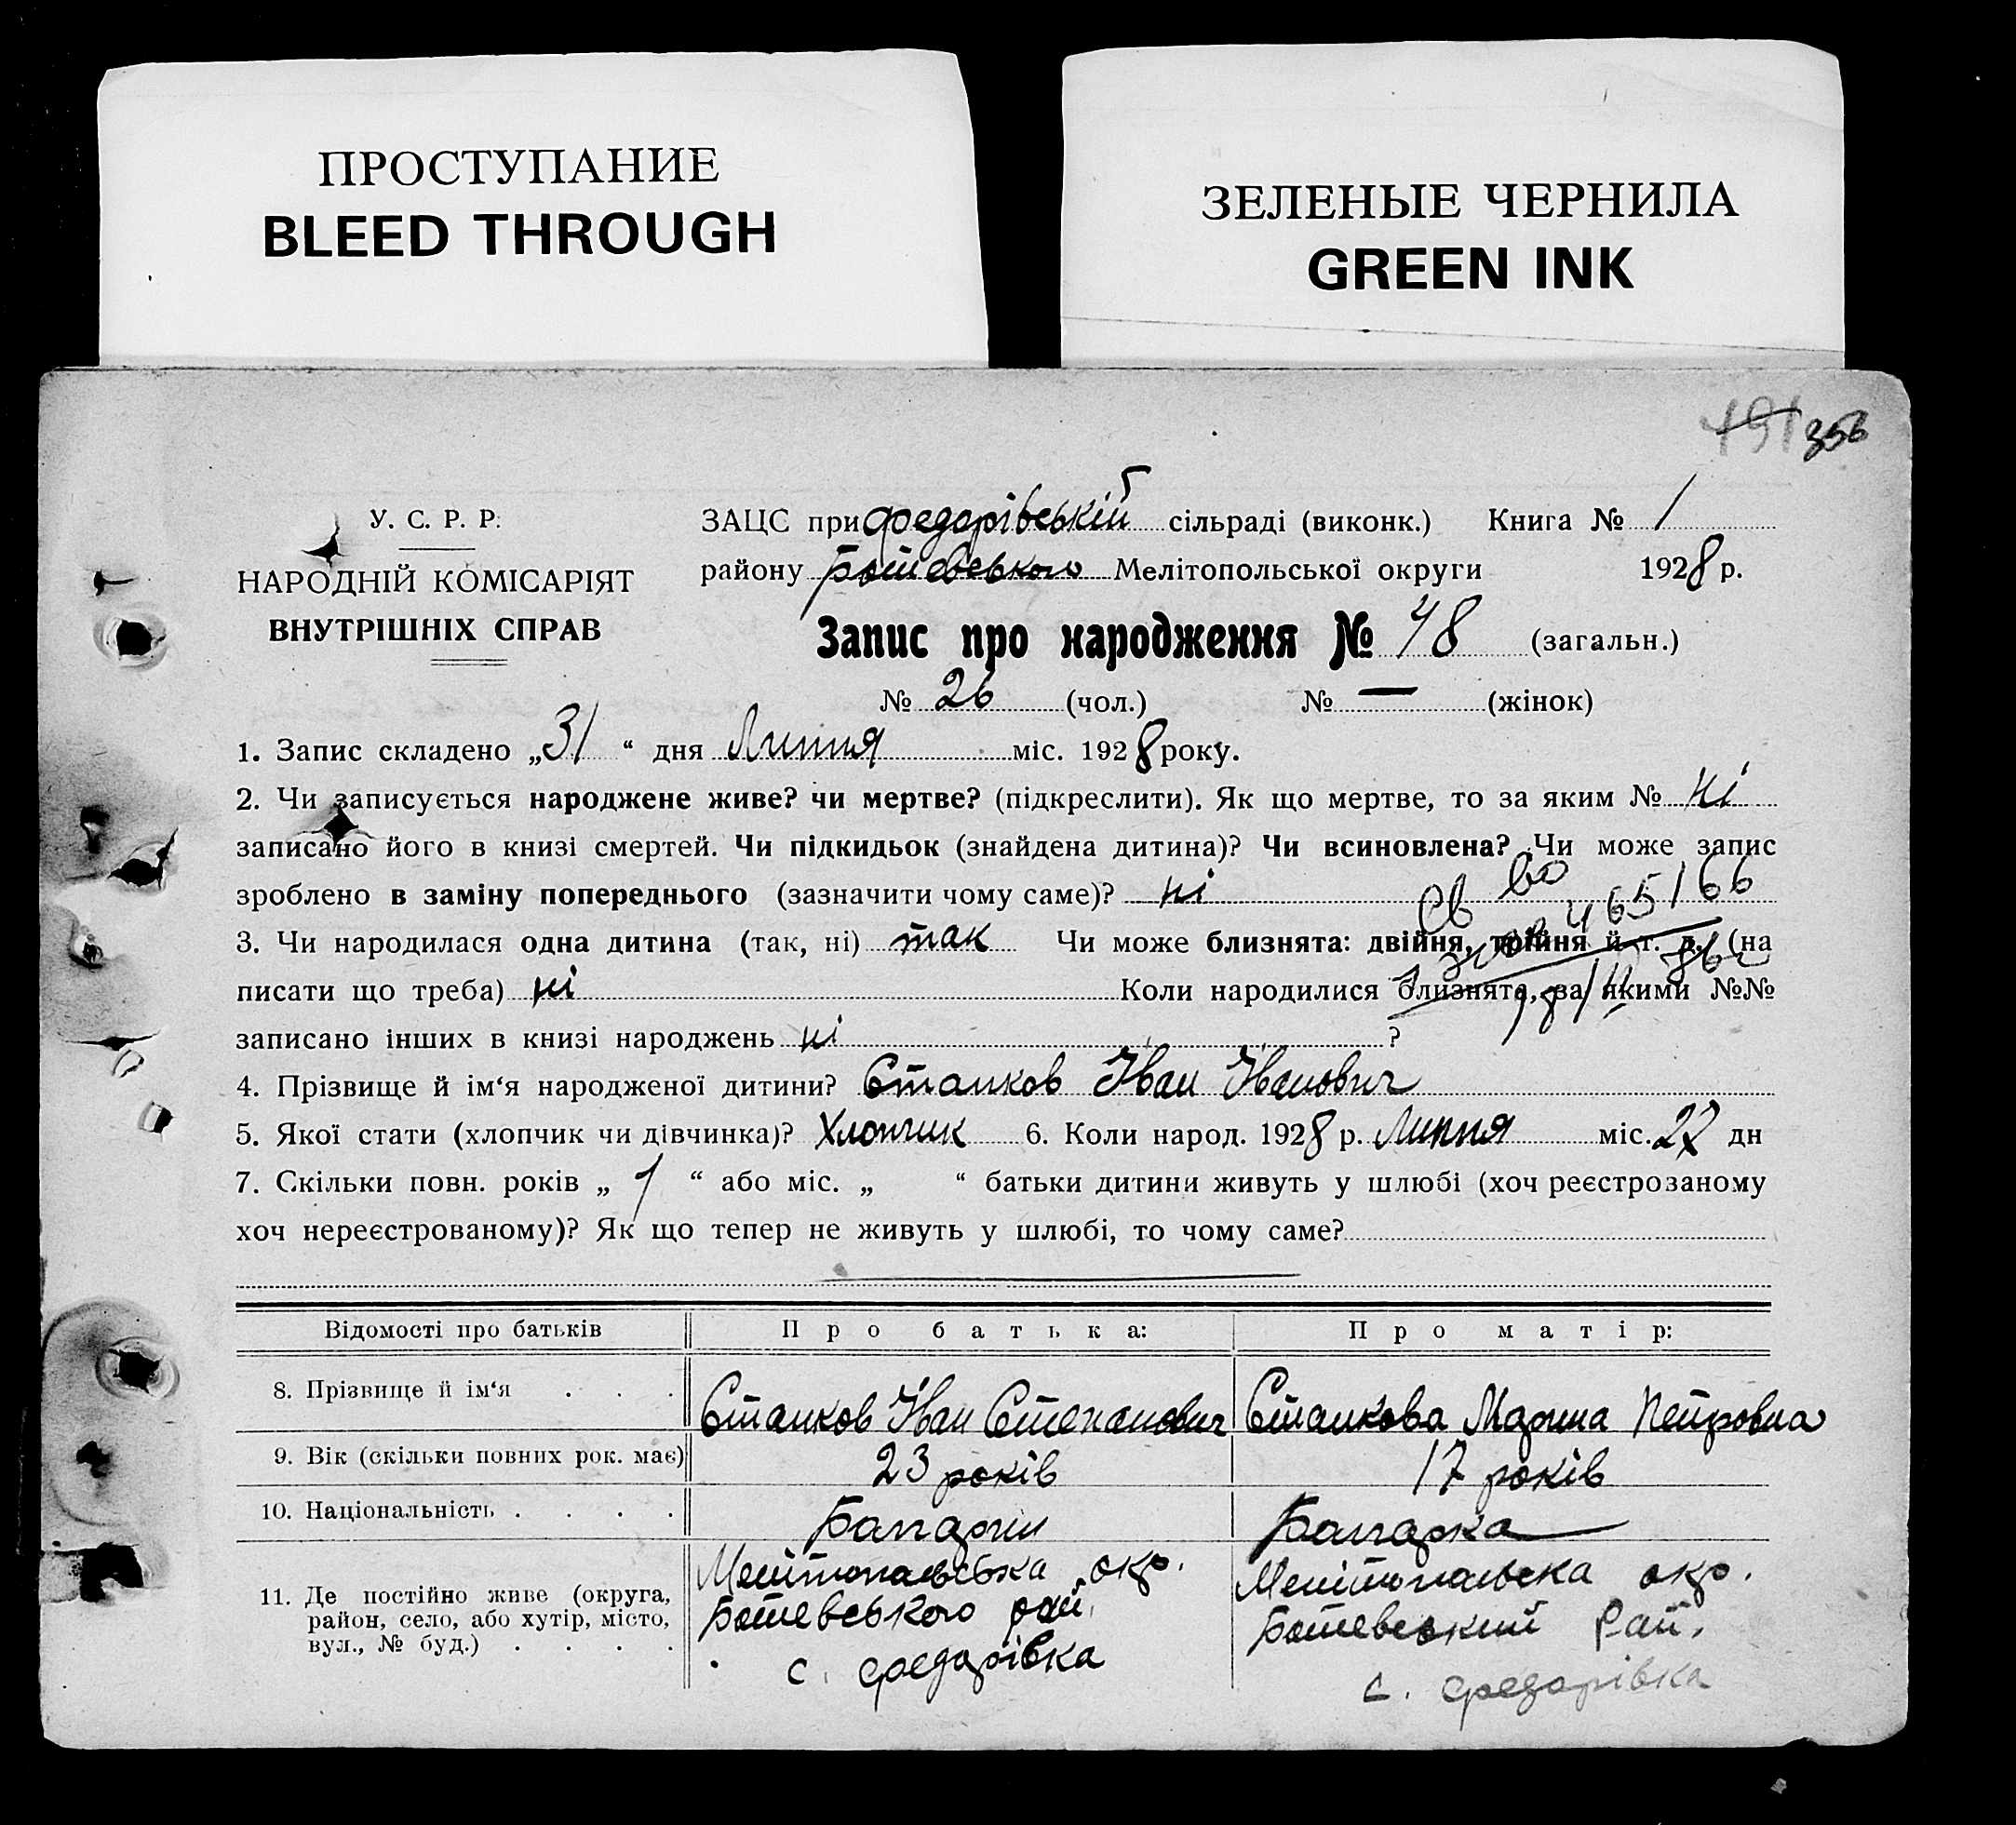 ПРОСТУПАНИЕ
BLEED THROUGH
ЗЕЛЕНЫЕ ЧЕРНИЛА
GREEN INK
191 356
У. С. Р. Р.
НАРОДНІЙ КОМІСАРІЯТ
ВНУТРІШНІХ СПРАВ
ЗАЦС при Федорівській сільраді (виконк.) Книга № 1
району Ботієвського Мелітопольської округи 1928 р.
Запис про народження № 48 (загальн.)
№ 26 (чол.) № — (жінок)
1. Запис складено „31“ дня Липня міс. 1928 року.
2. Чи записується народжене живе? чи мертве? (підкреслити). Як що мертве, то за яким № ні
записано його в книзі смертей. Чи підкидьок (знайдена дитина)? Чи всиновлена? Чи може запис
зроблено в заміну попереднього (зазначити чому саме)? ні
3. Чи народилася одна дитина (так, ні) так Чи може близнята: двійня, трійня й т. д. (на
писати що треба) ні Коли народилися близнята, за якими №№
записано інших в книзі народжень ні ?
4. Прізвище й ім‘я народженої дитини? Станков Іван Іванович
5. Якої стати (хлопчик чи дівчинка)? Хлопчик 6. Коли народ. 1928 р. Липня міс. 27 дн
7. Скільки повн. років „ 1 “ або міс. „ “ батьки дитини живуть у шлюбі (хоч реєстрованому
хоч нереєстрованому)? Як що тепер не живуть у шлюбі, то чому саме?
Відомості про батьків Про батька: Про матір:
8. Прізвище й ім‘я . . . Станков Іван Степанович Станкова Марина Петровна
9. Вік (скільки повних рок. має) 23 років 17 років
10. Національність . . . . Болгарин Болгарка
11. Де постійно живе (округа, район, село, або хутір, місто, вул., № буд.) . . . .
Мелітопольська окр.
Ботевського рай.
с. Федорівка
Мелітопольска окр.
Ботевський Рай.
с. Федорівка